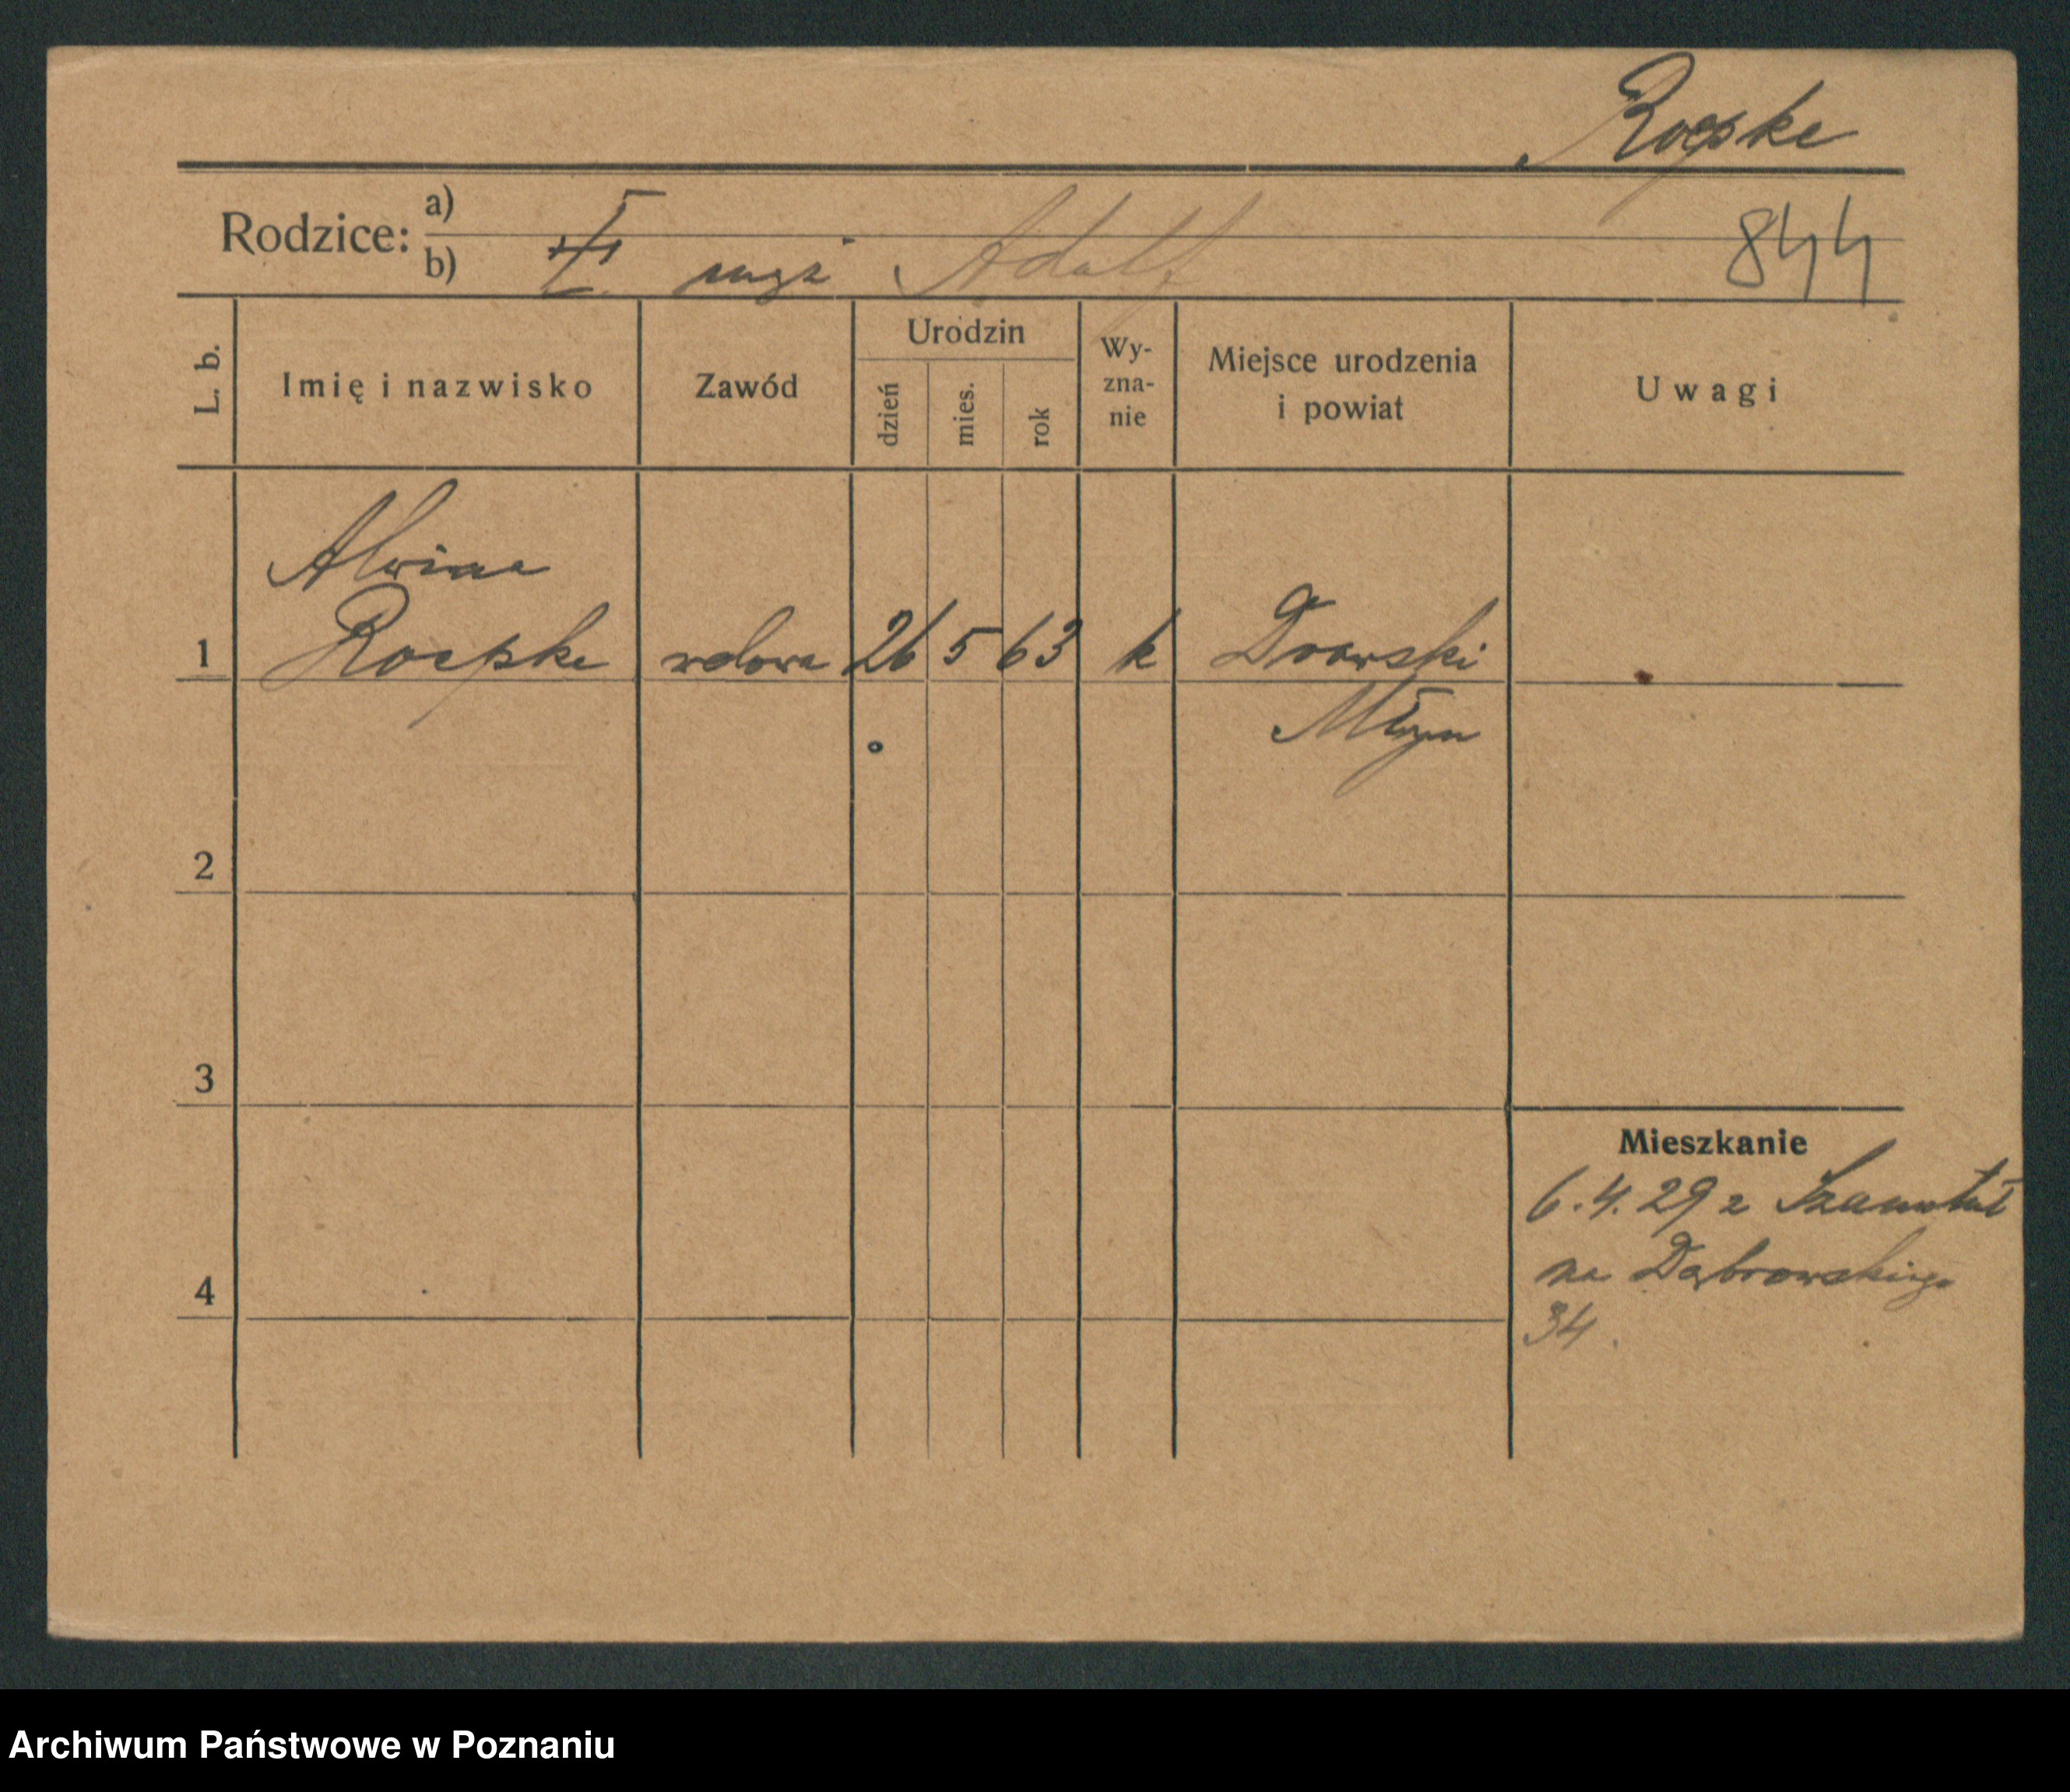 Roepke
Rodzice: a)
b) I mąż Adolf
844
L. b.
Imię i nazwisko
Zawód
Urodzin
dzień
mies.
rok
Wy-
zna-
nie
Miejsce urodzenia
i powiat
Uwagi
Alwina
1 Roepke wdowa 26 5 63 k Drawski
Młyn
2
3
Mieszkanie
6.4.29 z Szamotuł
na Dąbrowskiego
4
34.
Archiwum Państwowe w Poznaniu